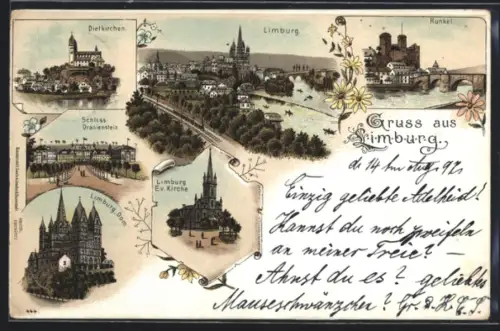 Dietkirchen.
Limburg.
Runkel.
Schloss
Oranienstein
Gruss aus
Limburg.
Limburg
Ev. Kirche
Limburg. Dom
d. 14 ten Aug. 97.
Einzig geliebte Adelheid!
Kannst du noch zweifeln
an meiner Treie? –
Ahnst du es? geliebtes
Mauseschwänzchen? Gr. d.